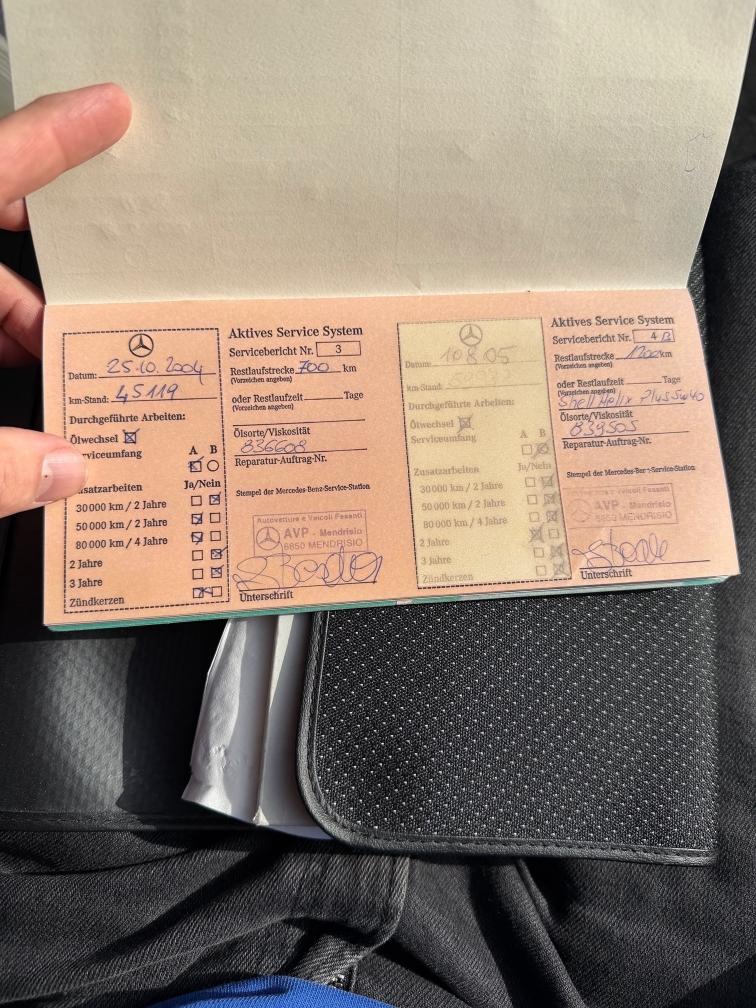 Datum: 25.10.2004
km-Stand: 45119
Durchgeführte Arbeiten:
Ölwechsel
rviceumfang
A B
usatzarbeiten
Ja/Nein
30 000 km / 2 Jahre
50 000 km / 2 Jahre
80 000 km / 4 Jahre
2 Jahre
3 Jahre
Zündkerzen
Aktives Service System
Servicebericht Nr. 3
Restlaufstrecke 700 km
(Vorzeichen angeben)
oder Restlaufzeit Tage
(Vorzeichen angeben)
Ölsorte/Viskosität
836608
Reparatur-Auftrag-Nr.
Stempel der Mercedes-Benz-Service-Station
Autovetture e Veicoli Pesanti
AVP - Mendrisio
6850 MENDRISIO
Unterschrift
Datum: 10 8 05
km-Stand:
Durchgeführte Arbeiten:
Ölwechsel
Serviceumfang
A B
Zusatzarbeiten
Ja/Nein
30 000 km / 2 Jahre
50 000 km / 2 Jahre
80 000 km / 4 Jahre
2 Jahre
3 Jahre
Zündkerzen
Aktives Service System
Servicebericht Nr. 4 B
Restlaufstrecke 1200 km
(Vorzeichen angeben)
oder Restlaufzeit Tage
(Vorzeichen angeben)
Shell Helix Plus 5w40
Ölsorte/Viskosität
839505
Reparatur-Auftrag-Nr.
Stempel der Mercedes-Benz-Service-Station
Autovetture e Veicoli Pesanti
AVP - Mendrisio
6850 MENDRISIO
Unterschrift